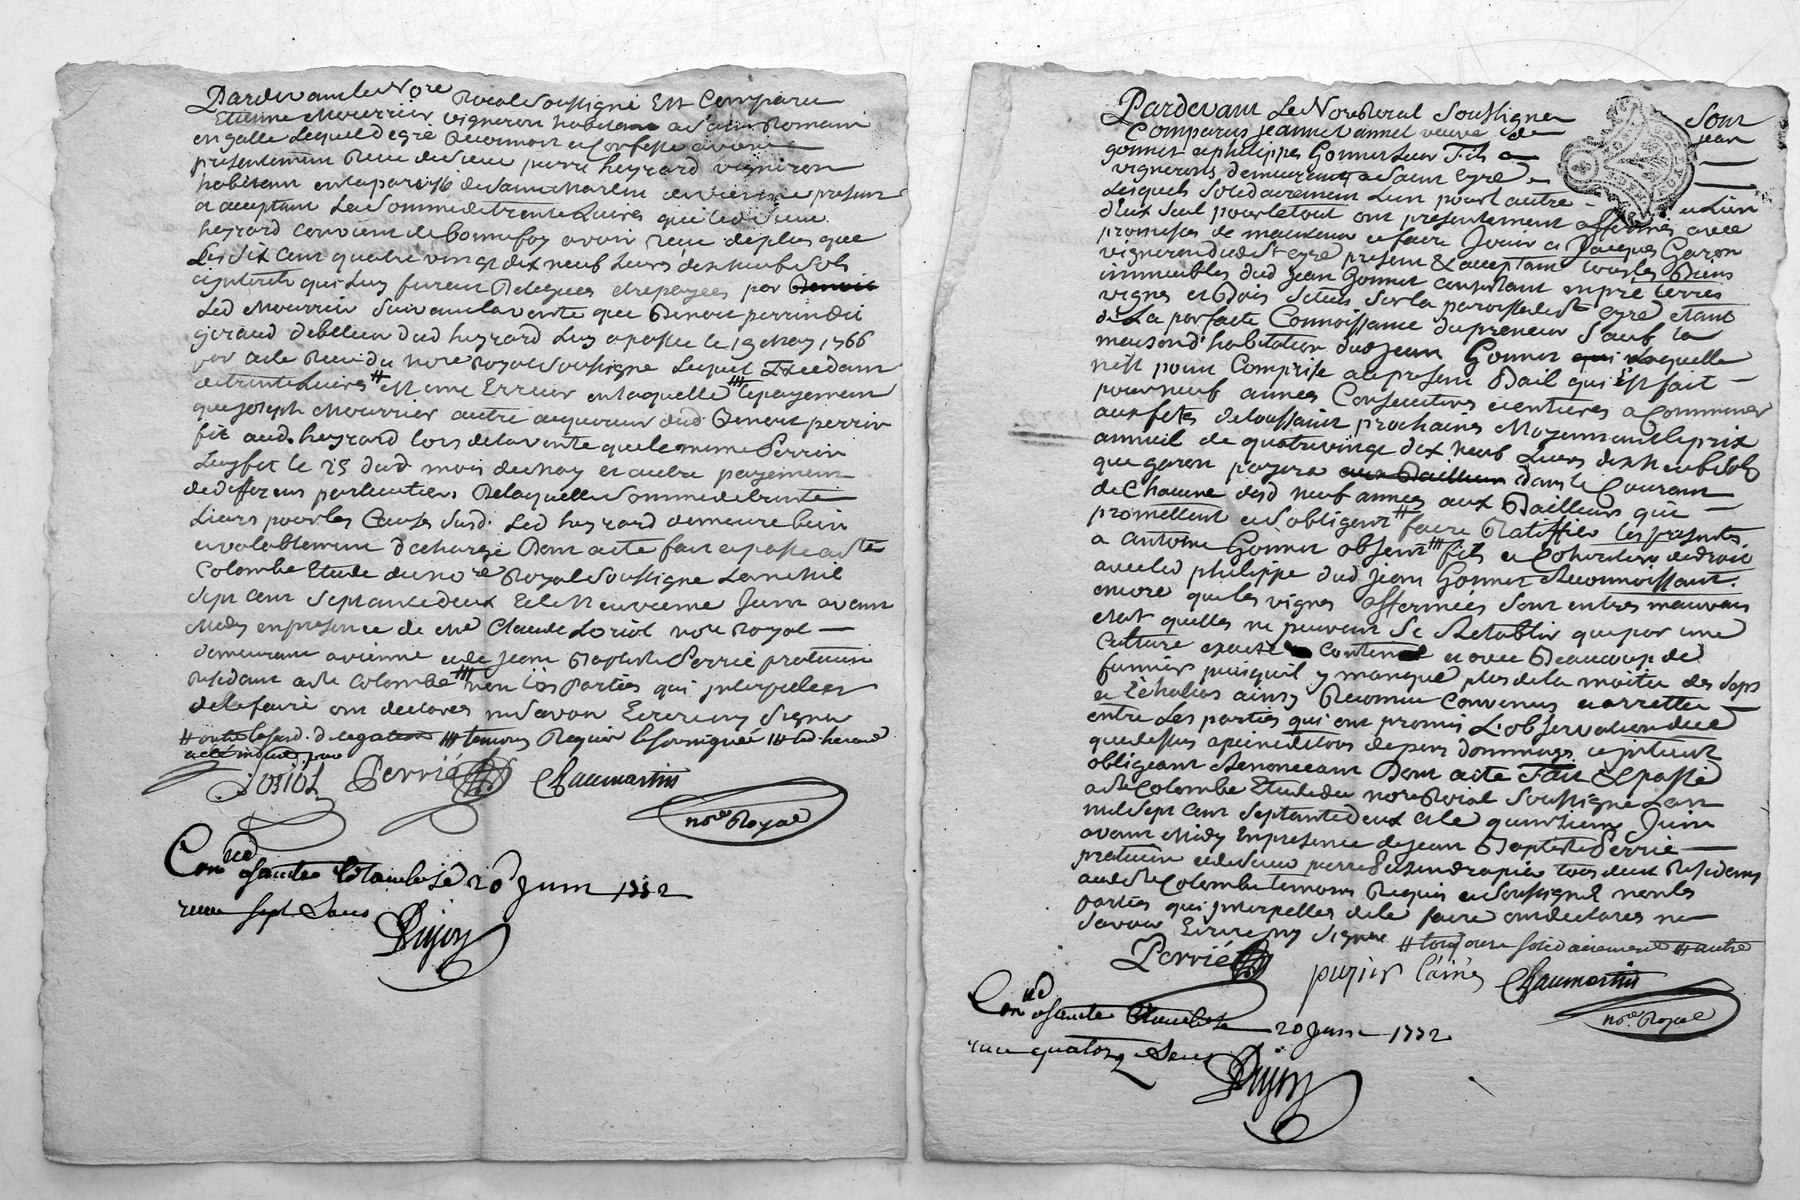 Pardevant le Nore Roial Soussigné Est Comparu
Etienne Mourrier vigneron habitant a Saint Romain
en galle Lequel de gré Reconnoit et Confesse avoir
présentement Receu du Sieur pierre heyrard vigneron
habitant en la paroisse de Saint Martin de vienne présent
et acceptant La Somme de trente Livres que led. Sieur
heyrard convient de bonne foy avoir Reçue de plus que
Les dix neuf Livres dix neuf Sols
qui Luy furent Deleguées et payées par Benoit
Led Mourrier Suivant la vente que Benoit perrin dit
giraud debiteur dud heyrard Luy a passée le 19 May 1766
par acte Receu du Nore Royal Soussigné Lequel Excedant
de trente Livres # Est une Erreur en laquelle le payement
que Joseph Mourrier autre acquereur dud Benoit perrin
fit aud. heyrard lors de la vente que le meme Perrin
Luy fit le 25 dud. mois de May et autre payement
de differens particuliers De laquelle Somme de trente
Livres pour les Causes Susd. Led heyrard demeure bien
et valablement déchargé Dont acte fait et passé a Ste
Colombe Etude du Nore Royal Soussigné L'an Mil
Sept Cent Septante deux Et le Neuvieme Juin avant
Midy en presence de Me Claude Loriol Nore Royal
demeurant a vienne et de Jean Baptiste Perrié praticien
Residant a Ste Colombe non les Parties qui interpelées
de le faire ont declarés ne Savoir Ecrire ny Signer
temoins Requis et soussignés led. heirard
Loriol Perrié Chaumartin
Nore Royal
Conlé a Sainte Colombe le 20 Juin 1772
receu sept Sous
Dujon
Pardevant Le Nore Roial Soussigné Sont
Comparus Jeanne annet veuve de Jean
Gonnet et philippes Gonnet Leur Fils
vignerons demeurants a Saint Cyre
Lesquels Solidairement L'un pour l'autre et L'un
d'eux Seul pour le tout ont présentement affermés avec
promesses de maintenir et faire Jouir a Jacques Garon
vigneron dud St Cyre présent & acceptant tous les Biens
immeubles dud Jean Gonnet consistant en pré terres
vignes et Bois Situés Sur la paroisse de St Cyre etant
de La parfaite Connoissance du preneur Sauf la
maison d'habitation dud Jean Gonnet qui Laquelle
n'est point Comprise au présent Bail qui Est fait
pour neuf années Consecutives et entieres a Commencer
aux fetes de toussaint prochaines Moyennant le prix
annuel de quatre vingt dix neuf Livres dix neuf Sols
que garon payera aux Bailleurs dans le Courant
de Chacune desd neuf années aux Bailleurs qui
promettent et S'obligent # faire Ratiffier les presentes
a antoine Gonnet fils et Cohéritier de droit
avec led philippe dud Jean Gonnet Reconnoissant
encore que les vignes affermées Sont en tres mauvais
etat quelles ne peuvent Se Retablir que par une
Culture exacte continue et avec Beaucoup de
fumier puisqu'il y manque plus de la moitié des Seps
et Echalias ainsy Reconnu Convenu et arretté
entre Les parties qui ont promis L'observation de ce
que dessus a peine de tous depens dommages et interest
obligeant Renonceant Dont acte Fait Et passé
a Ste Colombe Etude du nore Roial Soussigné L'an
mil Sept Cent Septante deux et le quinzieme Juin
avant Midy En presence de Jean Baptiste Perrié
praticien et de Sieur pierre tous deux Residents
aud Ste Colombe temoins Requis et Soussignés non les
parties qui interpellés de le faire ont declarés ne
Savoir Ecrire ny Signer # toujours solidairement
Perrié l'ainé Chaumartin
Nore Royal
Conlé a Sainte Colombe le 20 Juin 1772
receu quatorze Sous
Dujon